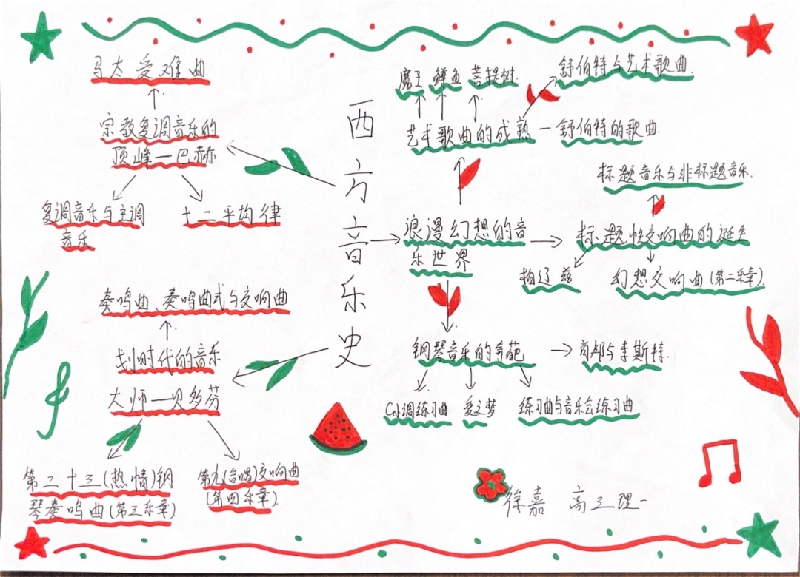 西方音乐史
马太受难曲
宗教复调音乐的
顶峰—巴赫
复调音乐与主调
音乐
十二平均律
奏鸣曲、奏鸣曲式与交响曲
划时代的音乐
大师—贝多芬
第二十三(热情)钢
琴奏鸣曲(第三乐章)
第九(合唱)交响曲
(第四乐章)
魔王 鳟鱼 菩提树
舒伯特与艺术歌曲
艺术歌曲的成熟—舒伯特的歌曲
标题音乐与非标题音乐
浪漫幻想的音
乐世界
标题性交响曲的诞生
柏辽兹
幻想交响曲(第二乐章)
钢琴音乐的奇葩
肖邦与李斯特
C小调练习曲 爱之梦 练习曲与音乐会练习曲
徐嘉 高三理一